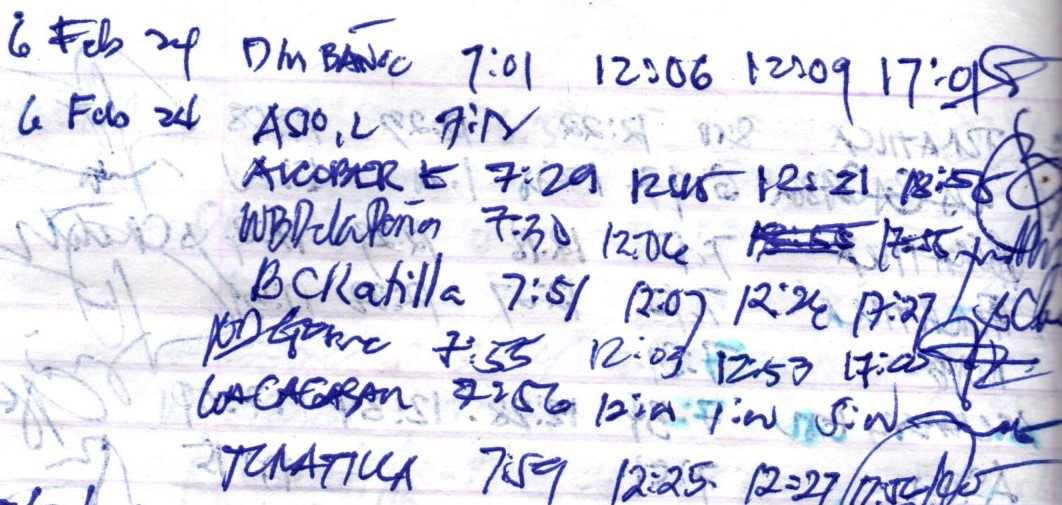 6 Feb 24 DM BAÑOC 7:01 12:06 12:09 17:05
6 Feb 24 ASIO, L 7:N
ALCOBER E 7:29 12:15 12:21 18:55
WB Dela Peña 7:30 12:04 17:55
BCRatilla 7:51 12:07 12:24 17:27
7:55 12:03 12:53 17:00
WACAGASAN 7:56 12:N 1:N 5:N
TCRATILLA 7:59 12:25 12:27